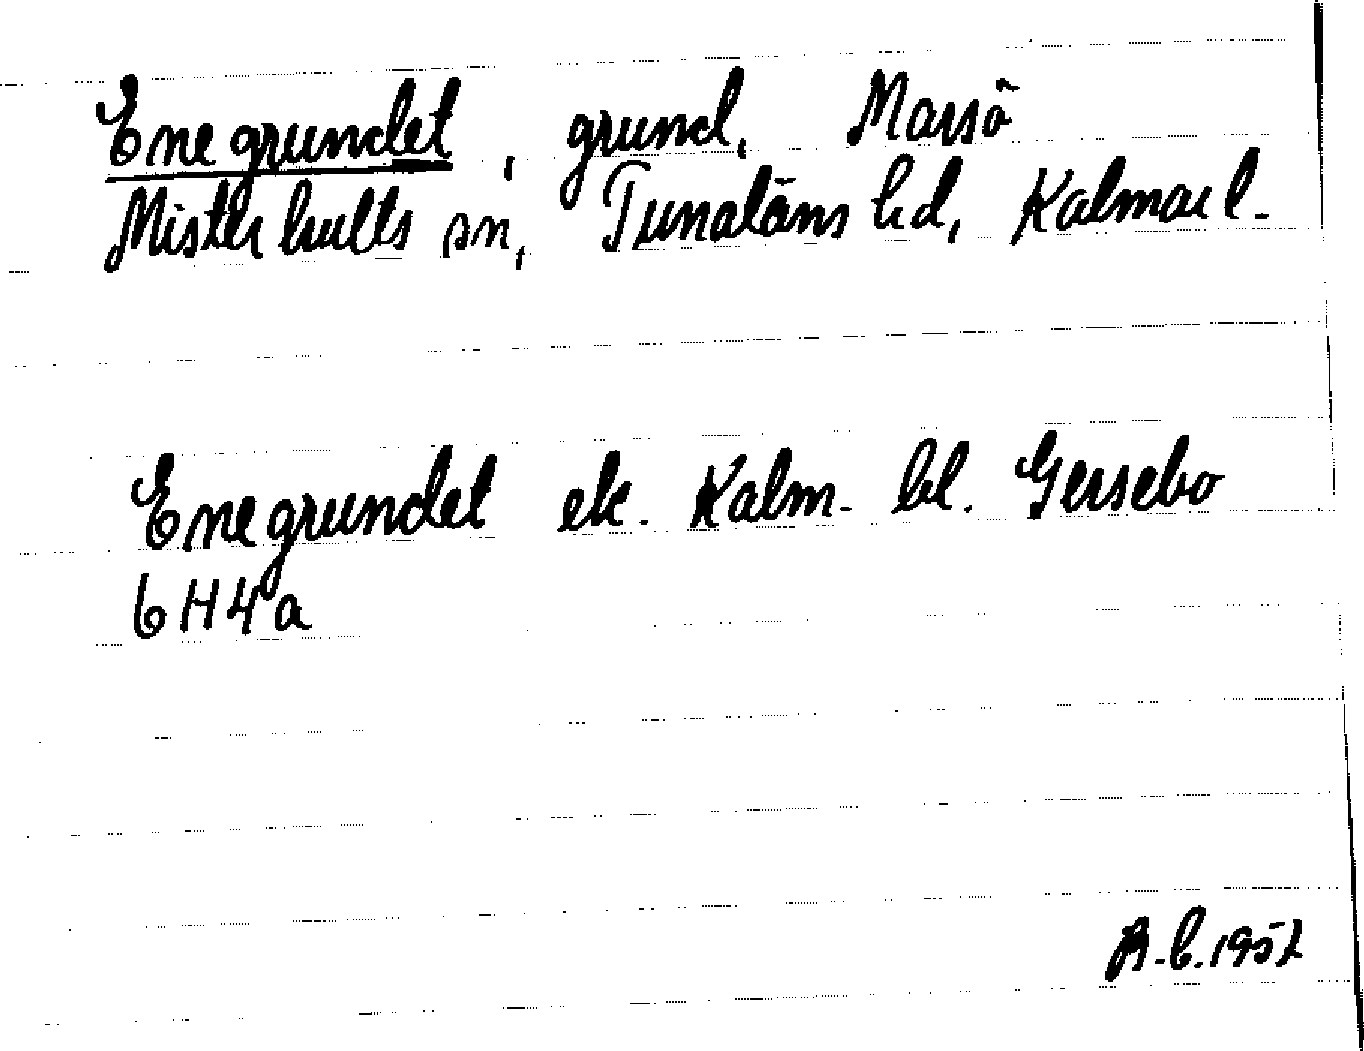 Enegrundet, grund, Marsö
Misterhults sn, Tunaläns hd, Kalmar l.
Enegrundet ek. Kalm. bl. Gersebo
6H4a
A.b.1952